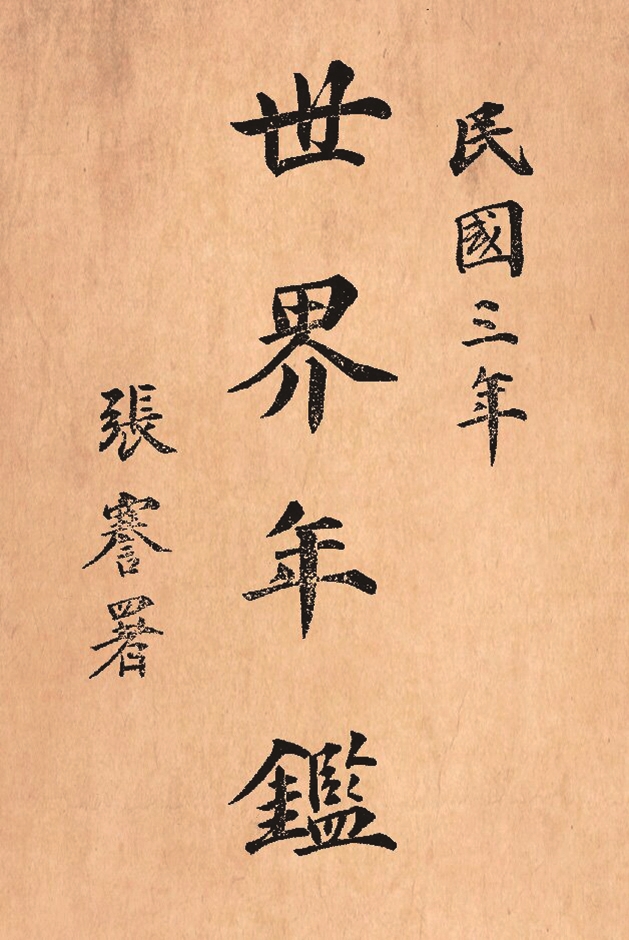 民國三年
世界年鑑
張謇署